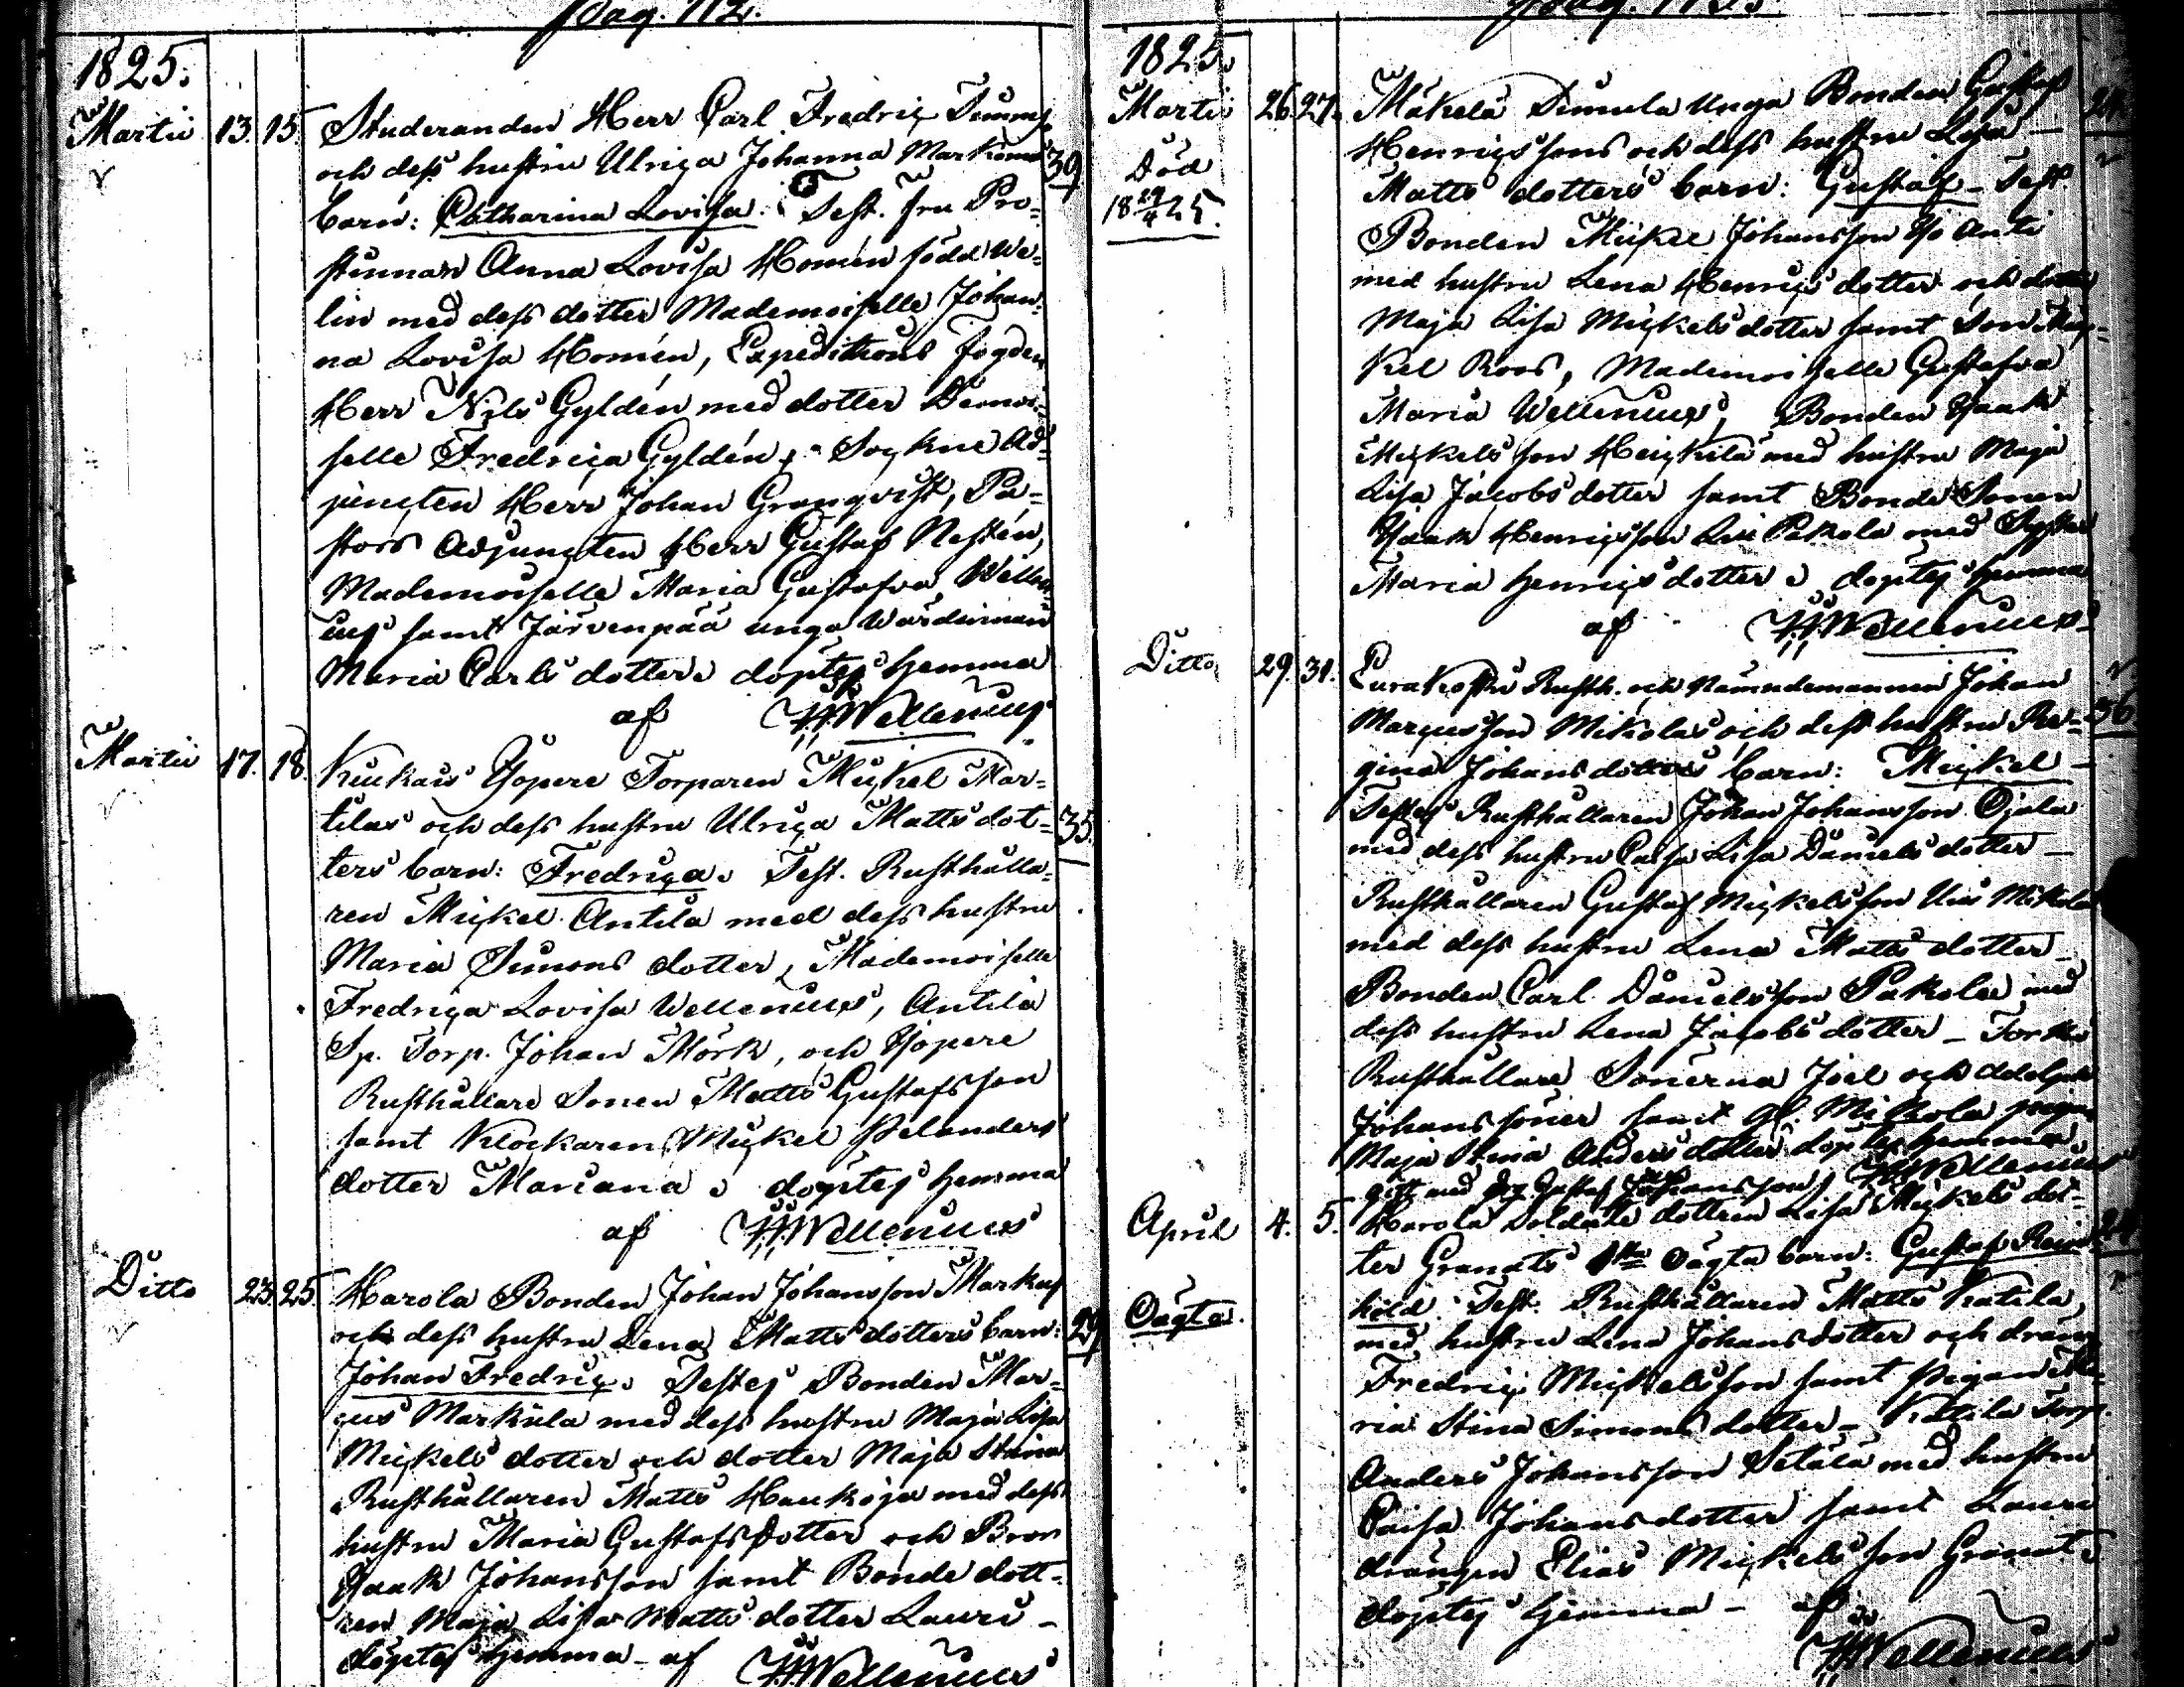 Pag. 112.
1825.
Martii 13. 15. Studeranden Herr Carl Fredric
och dess hustru Ulrica Johanna
barn: Catharina Lovisa. Test. fru Pro=
stinnan Anna Lovisa Homén född We=
lin med dess dotter Mademoiselle Johan=
na Lovisa Homén, Expeditions fogden
Herr Nils Gyldén med dotter Demoi=
selle Fredrica Gyldén, Sockne Ad=
juncten Herr Johan Granqvist, Pa=
stors Adjuncten Herr Gustaf Neflén,
Mademoiselle Maria Gustafva Wellen=
ius samt Järvenpää unga Wärdinnan
Maria Carls dotter. döptes hemma
af Wellenius
39
Martii 17. 18. Kiukais Yöpere Torparen Mickel Mar=
tilas och dess hustru Ulrica Matts dot=
ters barn: Fredrica. Test. Rusthålla=
ren Mickel Antila med dess hustru
Maria Simons dotter, Mademoiselle
Fredrica Lovisa Wellenius, Antila
Sp. Torp. Johan Mörk, och Yöpere
Rusthållare Sonen Matts Gustafsson
samt Klockaren Mickel Helanders
dotter Mariana. döptes hemma
af Wellenius
35.
Ditto 23. 25. Harola Bonden Johan Johansson Markus
och dess hustru Lena Matts dotters barn:
Johan Fredric. Testes Bonden Mar=
cus Markula med dess hustru Maja Lisa
Mickels dotter och dotter Maja Stina
Rusthållaren Matts Haukoja med dess
hustru Maria Gustafs dotter och Bror
Isaak Johansson samt Bonde dott=
ren Maja Lisa Matts dotter Lauri –
döptes hemma – af Wellenius
29
1825.
Martii 26. 27. Mäkelä Simula Unga Bonden Gustaf
Henrics sons och dess hustru Lisa –
Matts dotters barn: Gustaf – Test.
Bonden Mickel Johansson Iso Anti
med hustru Lena Henrics dotter och dotter
Maja Lisa Mickels dotter samt Son Mic=
kel Roos, Mademoiselle Gustafva
Maria Wellenius, Bonden Isaak
Mickels son Heickilä med hustru Maja
Lisa Jacobs dotter samt Bonde Sonen
Isaak Henricsson Pakola med Syster
Maria Henrics dotter. döptes hemma
af Wellenius
Död
18 29/4 25.
Ditto 29. 31. Eurakoski Rusth. och Nämndemannen Johan
Marcusson Mikolas och dess hustru Re=
gina Johansdotters barn: Mickel –
Testes Rusthållaren Johan Johansson Ojala
med dess hustru Caisa Lisa Daniels dotter –
Rusthållaren Gustaf Mickelsson Uusi Mikola
med dess hustru Lena Matts dotter –
Bonden Carl Danielsson Pakola med
dess hustru Lena Jacobs dotter –
Rusthållare Sönerna Joel och
Johanssöner samt Mikola
Maja Stina Anders dotter döptes hemma
gift med Gustaf Johansson Wellenius
36
April 4. 5. Harola Soldate dottren Lisa Mickels dot=
ter Granats oägta barn: Gustaf Rein=
hold. Test. Rusthållaren Matts Katila
med hustru Lena Johansdotter och dräng
Fredric Mickelsson samt Pigan Ma=
ria Stina Simons dotter – Katila Torp.
Anders Johansson Setälä med hustru
Caisa Johansdotter samt Lauri
drängen Elias Mickelsson Granat.
döptes hemma – af
Wellenius
Oägta.